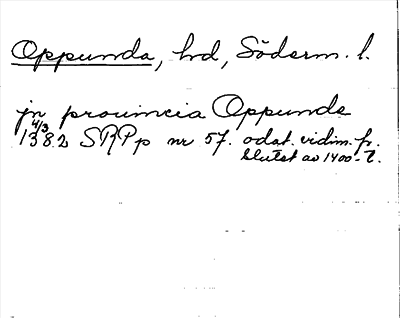 Oppunda, hd, Söderm. l.
jn prouincia Oppunde
4/3
1382 SRPp nr 57. odat. vidim. fr.
slutet av 1400-t.